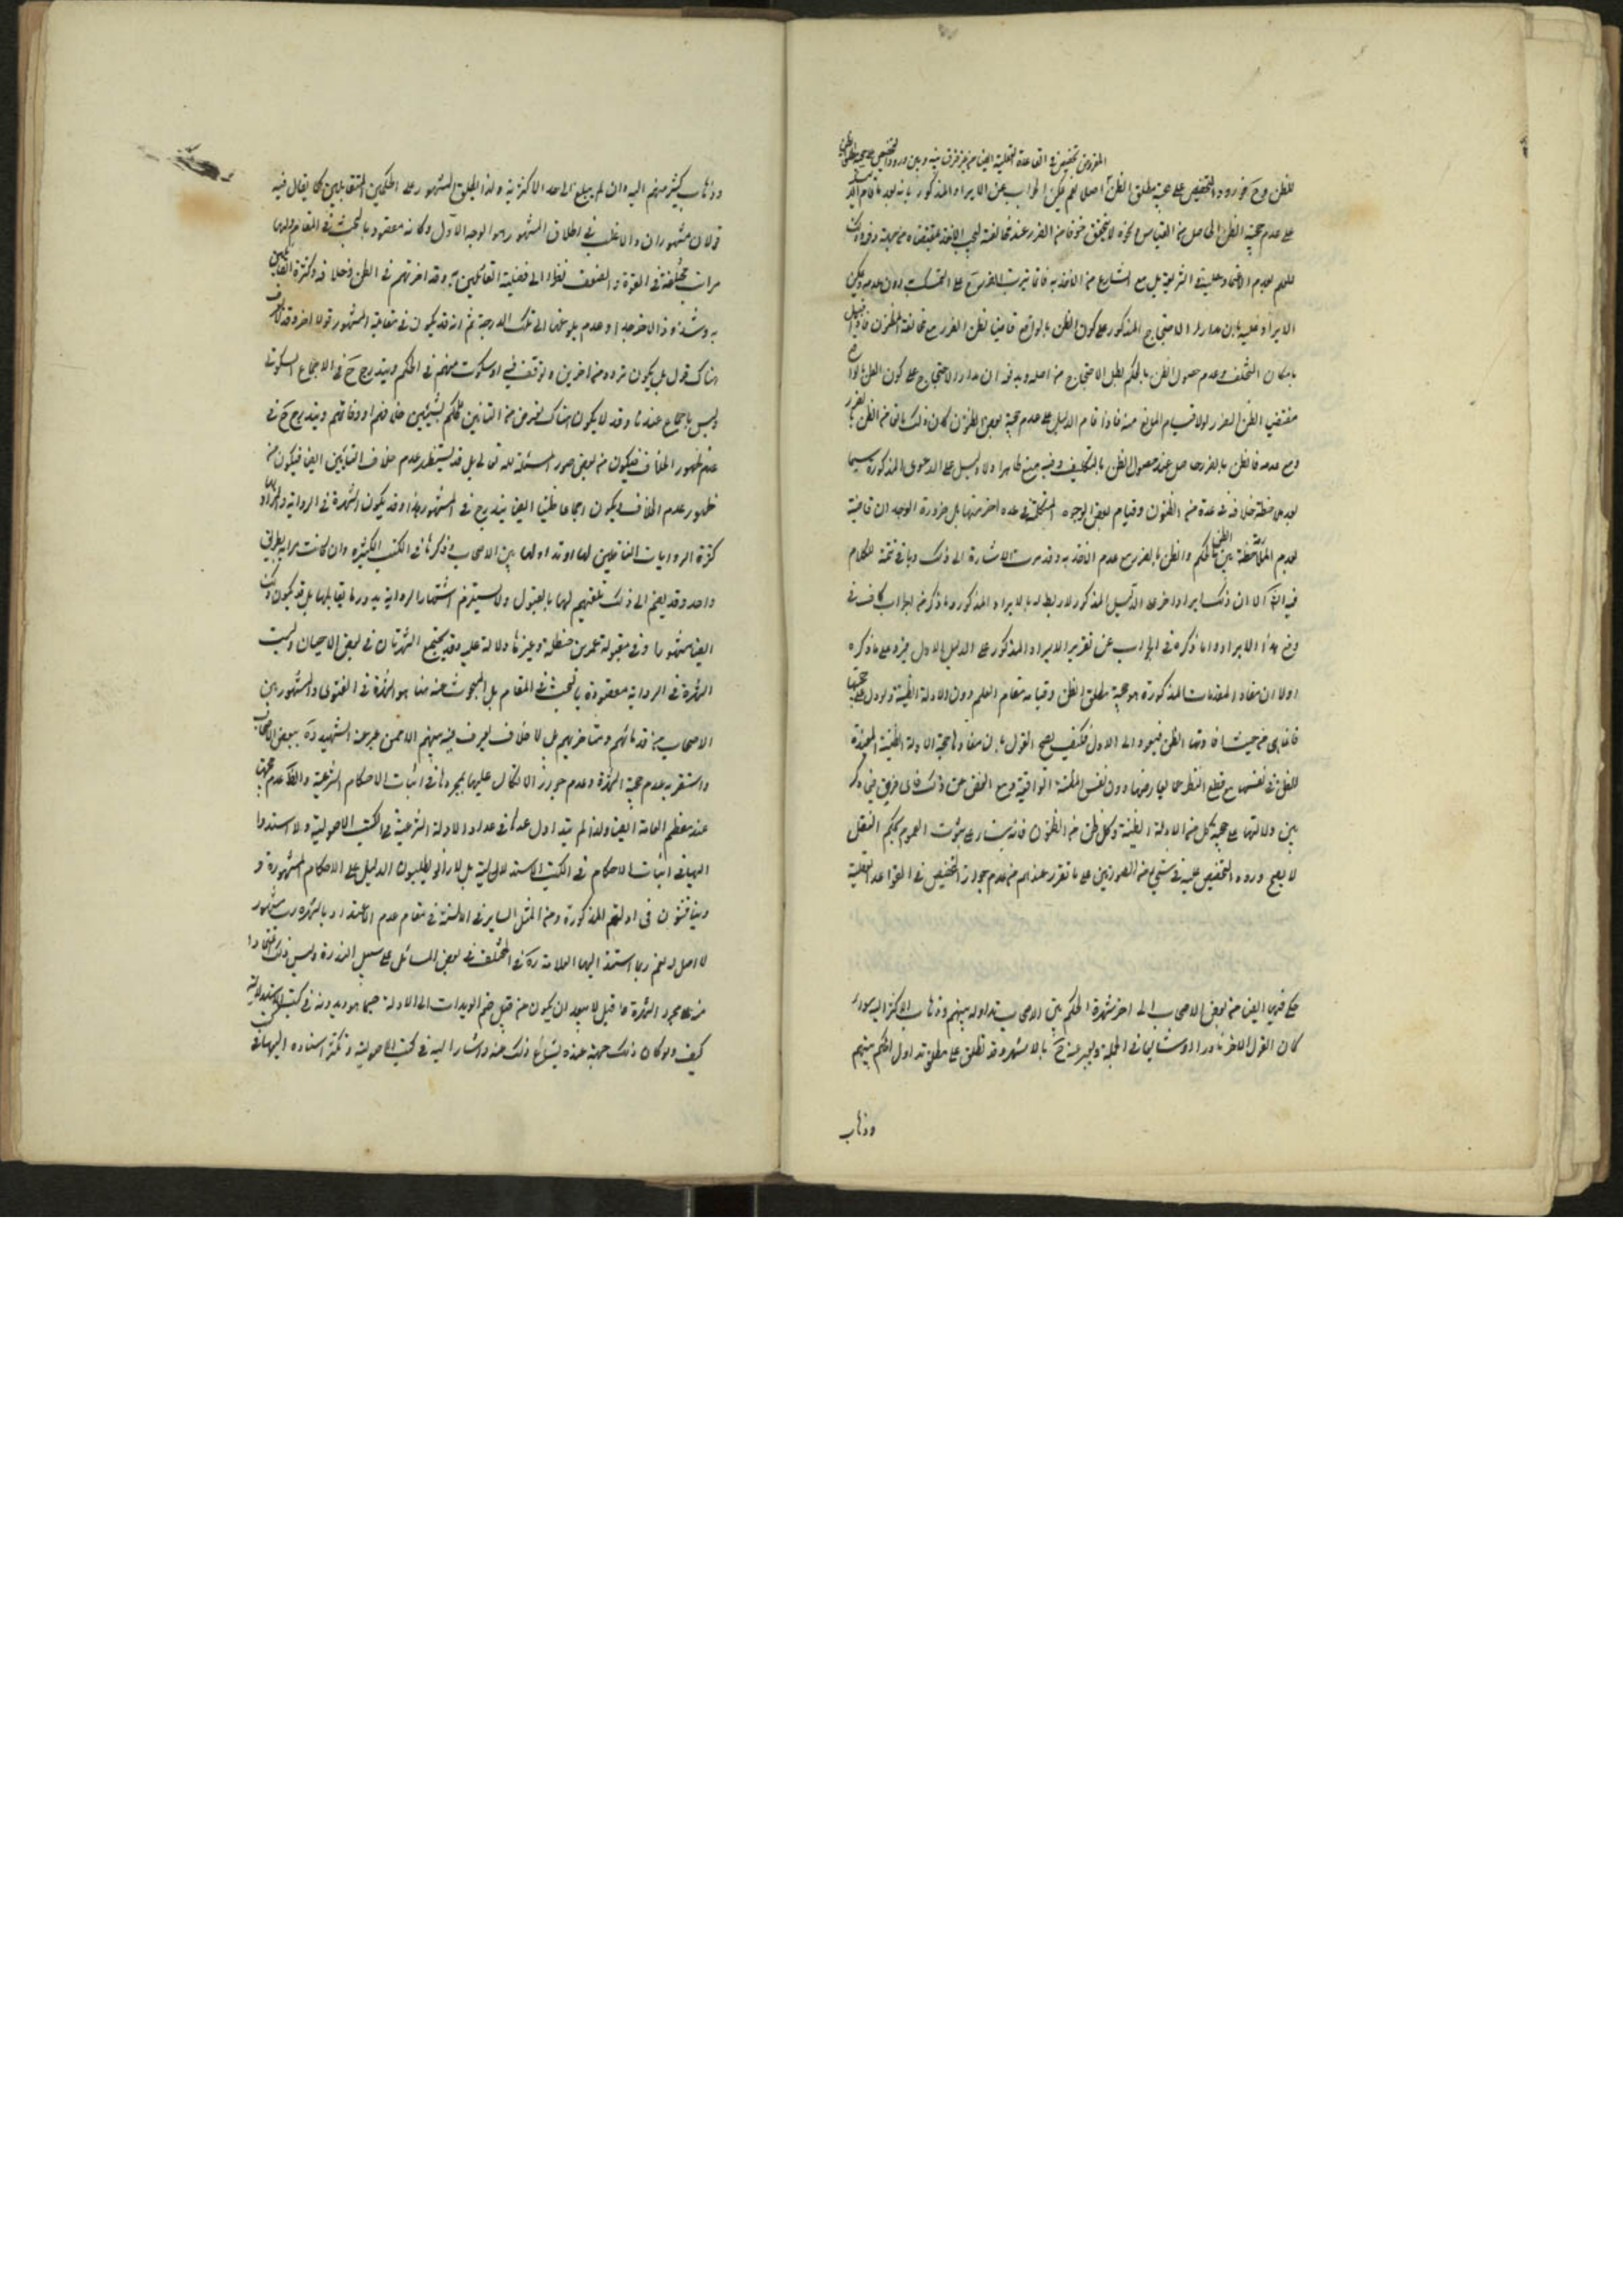 المقرر من تخصيص في القاعدة العقلية ايضا من غير فرق بينه وبين ورود التخصيص على حجية مطلق الظن
للظن وح فورود التخصيص على حجية مطلق الظن اصلا نعم يمكن الجواب عن الايراد المذكور بانه بعد ما قام الدليل
على عدم حجية الظن الحاصل من القياس ونحوه لا يتحقق خوف من الضرر عند مخالفته ليجب الاخذ بمقتضاه من جهة دفعه وذلك
للعلم بعدم الاعتماد عليه في الشريعة بل منع الشارع من الاخذ به فانما يترتب الضرر ح على التمسك به دون عدمه ويمكن
الايراد عليه بان مدار الاحتجاج المذكور على كون الظن بالواقع قاضيا بظن الضرر مع مخالفة المظنون فاذا قيل
بامكان التخلف وعدم حصول الظن بالحكم بطل الاحتجاج من اصله ويدفعه ان مدار الاحتجاج على كون الظن بالواقع
مقتضى الظن الضرر لولا قيام المانع منه فاذا قام الدليل على عدم حجية بعض الظنون كان ذلك مانعا من الظن بالضرر
ومع عدمه فالظن بالضرر حاصل عند حصول الظن بالتكليف وفيه منع ظاهر اذ لا دليل على الدعوى المذكورة سيما
بعد ملاحظة خلافه في عدة من الظنون وقيام بعض الوجوه المشككة في عدة اخر منها بل ضرورة الوجدان قاضية
بعدم الملازمة بين الظن بالحكم والظن بالضرر مع عدم الاخذ به وقد مرت الاشارة الى ذلك وياتي تتمة الكلام
فيه انش الا ان ذلك ايراد اخر على الدليل المذكور لا ربط له بالايراد المذكور وما ذكر من الجواب كاف في
دفع هذا الايراد واما ما ذكره في الجواب عن تقرير الايراد المذكور على الدليل الاول فيرد على ما ذكره
اولا ان مفاد المقدمات المذكورة هو حجية مطلق الظن وقيامه مقام العلم دون الادلة الظنية ولو دل على حجيتها
فانما هي من حيث افادتها الظن فيعود الى الاول فكيف يصح القول بان مفادها حجية الادلة الظنية المفيدة
للظن في نفسها مع قطع النظر عما يعارضها دون نفس المظنة الواقعية ومع الغض عن ذلك فاي فرق في ذلك
بين دلالتها على حجية كل من الادلة الظنية وكل ظن من الظنون فانه بناء على ثبوت العموم بحكم العقل
لا يصح ورود التخصيص عليه في شيء من الصورتين على ما تقرر عندهم من عدم جواز التخصيص في القواعد العقلية
حكى قولي ايضا من بعض الاصحاب الى اخر شهرة الحكم بين الاصحاب تداوله بينهم وذهاب الاكثر اليه سواء
كان القول الاخر نادرا او شايعا في الجملة ويعبر عنه ح بالاشهر وقد تطلق على مطلق تداول الحكم بينهم
وذهاب
وذهاب كثير منهم اليه وان لم يبلغ الى حد الاكثرية ولذا يطلق المشهور على الحكمين المتقابلين كما يقال فيه
قولان مشهوران والاغلب في اطلاق المشهور هو الوجه الاول وكانه معقود بالبحث في المقام ولها
مراتب مختلفة في القوة والضعف نظرا الى فضيلة القائلين به وقد اخر بهم في الظن وخلافه وكثرة القائلين
به وشذوذ الاخر جدا وعدم بلوغها الى تلك الدرجة ثم انه قد يكون في مقابلة المشهور قول اخر وقد لا يكون
هناك قول بل يكون تردد من اخرين وتوقف فيه او سكوت منهم في الحكم ويندرج ح في الاجماع السكوتي
وليس باجماع عندنا وقد لا يكون هناك تعرض من الباقين للحكم ليتبين خلافهم او وفاقهم ويندرج ح في
عدم ظهور الخلاف فيكون من بعض صور المسئلة له تعالى بل قد يستظهر عدم خلاف الباقين ايضا فيكون من
ظهور عدم الخلاف ويكون اجماعا ظنيا ايضا يندرج في المشهور هذا وقد يكون الشهرة في الرواية والمراد بها
كثرة الروايات الناقلين لها او تداولها بين الاصحاب وذكرها في الكتب الكثيرة وان كانت مروية بطريق
واحد وقد يضم الى ذلك تلقيهم لها بالقبول ولا يستلزم اشتهار الرواية ندور ما يقابلها بل قد يكون ذلك
ايضا مشهورا وفي مقبولة عمر بن حنظلة وغيرها دلالة عليه وقد يجتمع الشهرتان في بعض الاحيان وليست
الشهرة في الرواية معقودة بالبحث في المقام بل المبحوث عنه هنا هو الشهرة في الفتوى والمشهور بين
الاصحاب من قدمائهم ومتاخريهم بل لا خلاف يعرف فيه بينهم الا ممن عبر عنه الشهيد ره ببعض الاصحاب
واستقر به عدم حجية الشهرة وعدم جواز الاتكال عليها بمجردها في اثبات الاحكام الشرعية والظ عدم حجيتها
عند معظم العامة ايضا ولذا لم يتداول عدها في عداد الادلة الشرعية في الكتب الاصولية ولا استندوا
اليها في اثبات الاحكام في الكتب الاستدلالية بل لا زالوا يطلبون الدليل على الاحكام المشهورة و
ويناقشون في ادلتهم المذكورة ومن المثل الساير في الالسنة في مقام عدم الاعتداد بالشهرة رب مشهور
لا اصل له نعم ربما استند اليها العلامة ره في المختلف في بعض المسائل على سبيل الندرة وليس ذلك اعتمادا
منه على مجرد الشهرة بل لا يبعد ان يكون من قبيل ضم المويدات الى الادلة حيثما هو ديدنه في كتبه الاستدلالية
كيف ولو كان ذلك حجة عنده لشاع ذلك عنه واشار اليه في كتبه الاصولية وتكثر استناده اليها في